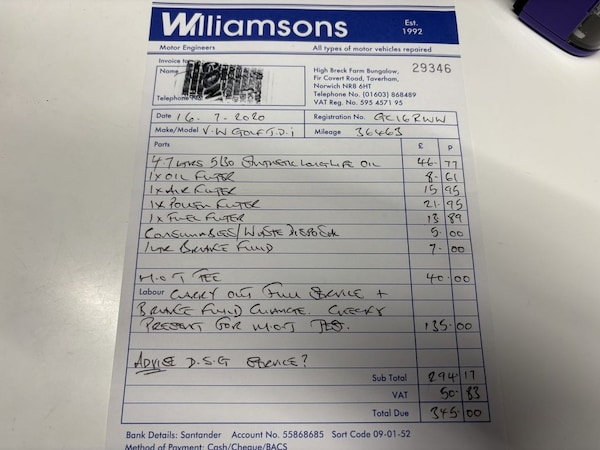 Williamsons Est. 1992
Motor Engineers All types of motor vehicles repaired
Invoice to
Name
Telephone No.
High Breck Farm Bungalow,
Fir Covert Road, Taverham,
Norwich NR8 6HT
Telephone No. (01603) 868489
VAT Reg. No. 595 4571 95
29346
Date 16-7-2020 Registration No. GC16RWW
Make/Model V.W GOLF T.D.i Mileage 36463
Parts £ P
4.7 LTRS 5/30 SYNTHETIC LONGLIFE OIL 46-77
1x OIL FILTER 8-61
1x AIR FILTER 15 95
1x POLLEN FILTER 21-95
1x FUEL FILTER 13 89
CONSUMABLES/WASTE DISPOSAL 5.00
1LTR BRAKE FLUID 7.00
M.O.T FEE 40.00
Labour CARRY OUT FULL SERVICE +
BRAKE FLUID CHANGE. CHECK
PRESENT FOR M.O.T TEST. 135.00
ADVISE D.S.G SERVICE?
Sub Total 294.17
VAT 50.83
Total Due 345.00
Bank Details: Santander Account No. 55868685 Sort Code 09-01-52
Method of Payment: Cash/Cheque/BACS